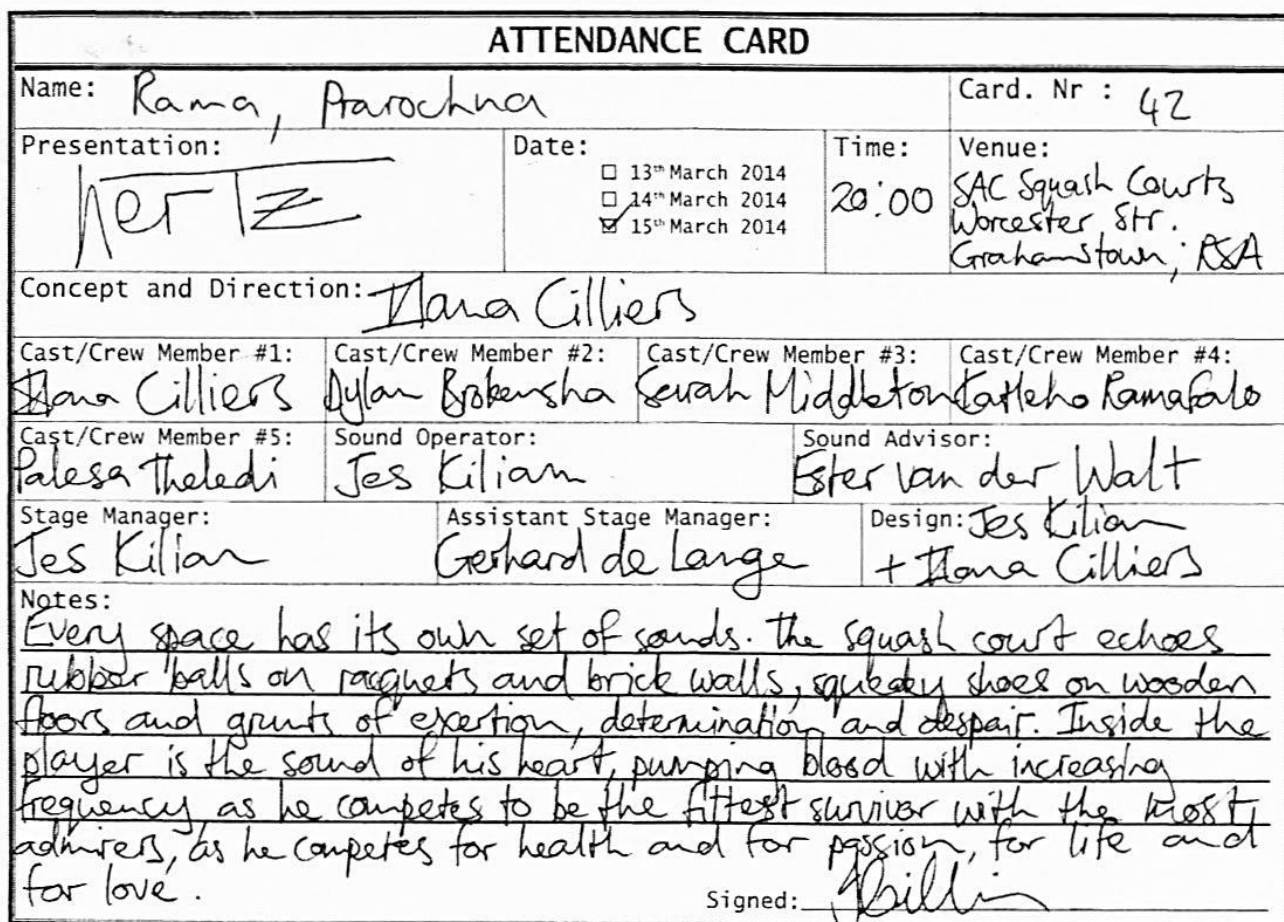 ATTENDANCE CARD
Name: Rama, Prarochna
Card. Nr : 42
Presentation: herTz
Date:
☐ 13th March 2014
☐ 14th March 2014
☑ 15th March 2014
Time: 20:00
Venue: SAC Squash Courts
Worcester Str.
Grahamstown, RSA
Concept and Direction: Ilana Cilliers
Cast/Crew Member #1: Ilana Cilliers
Cast/Crew Member #2: Dylan Brokensha
Cast/Crew Member #3: Sarah Middleton
Cast/Crew Member #4: Katleho Ramafalo
Cast/Crew Member #5: Palesa Theledi
Sound Operator: Jes Kilian
Sound Advisor: Ester van der Walt
Stage Manager: Jes Kilian
Assistant Stage Manager: Gerhard de Lange
Design: Jes Kilian
+ Ilana Cilliers
Notes:
Every space has its own set of sounds. The squash court echoes
rubber balls on racquets and brick walls, squeaky shoes on wooden
floors and grunts of exertion, determination and despair. Inside the
player is the sound of his heart, pumping blood with increasing
frequency as he competes to be the fittest survivor with the most
admirers, as he competes for health and for passion, for life and
for love.
Signed: